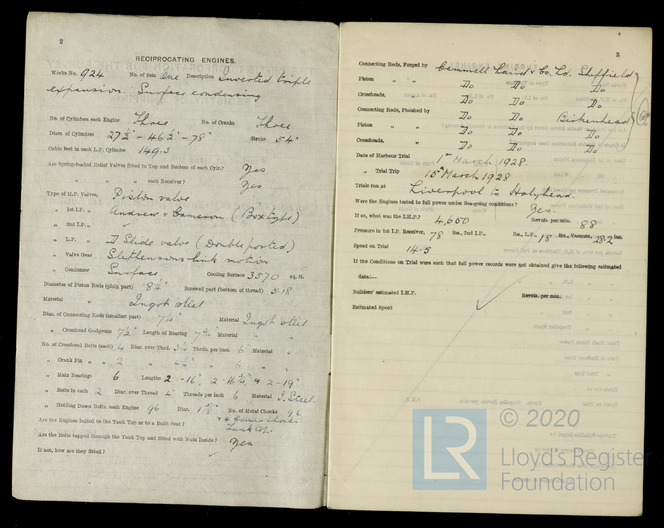 2
RECIPROCATING ENGINES.
Works No. 924 No. of Sets One Description Inverted triple
expansion. Surface condensing
No. of Cylinders each Engine Three No. of Cranks Three
Diars. of Cylinders 27½" - 46½" - 78" Stroke 54"
Cubic feet in each L.P. Cylinder 149.3
Are Spring-loaded Relief Valves fitted to Top and Bottom of each Cylr.? Yes
" " " each Receiver? Yes
Type of H.P. Valves, Piston valve
" 1st I.P. " Andrew & Cameron (Box type)
" 2nd I.P. "
" L.P. " D Slide valve (Double ported)
" Valve Gear Stephenson's link motion
" Condenser Surface Cooling Surface 3570 sq. ft.
Diameter of Piston Rods (plain part) Screwed part (bottom of thread) 5.18
Material Ingot steel
Diar. of Connecting Rods (smallest part) 7¼" Material Ingot steel
" Crosshead Gudgeons Length of Bearing Material
No. of Crosshead Bolts (each) 4 Diar. over Thrd. Thrds. per inch 6 Material "
" Crank Pin " " 2 " " "
" Main Bearings 6 Lengths 2 - 16", 2 - 2 - 19"
" Bolts in each 2 Diar. over Thread Threads per inch 6 Material I. Steel
" Holding Down Bolts, each Engine 96 Diar. No. of Metal Chocks 96
Are the Engines bolted to the Tank Top or to a Built Seat? Tank top
Are the Bolts tapped through the Tank Top and fitted with Nuts Inside? Yes
If not, how are they fitted?
3
Connecting Rods, Forged by Cammell Laird & Co. Ld. Sheffield
Piston " " Do Do Do
Crossheads, " " Do Do Do
Connecting Rods, Finished by Do Do Birkenhead
Piston " " Do Do Do
Crossheads, " " Do Do Do
Date of Harbour Trial 1st March 1928.
" Trial Trip 15th March 1928
Trials run at Liverpool to Holyhead.
Were the Engines tested to full power under Sea-going conditions? Yes.
If so, what was the I.H.P.? 4,650 Revols. per min. 88
Pressure in 1st I.P. Receiver, 78 lbs., 2nd I.P., lbs., L.P., 18 lbs., Vacuum, 28.2 ins.
Speed on Trial 14.5
If the Conditions on Trial were such that full power records were not obtained give the following estimated
data:—
Builders' estimated I.H.P. Revols. per min.
Estimated Speed
LR © 2020
Lloyd's Register
Foundation